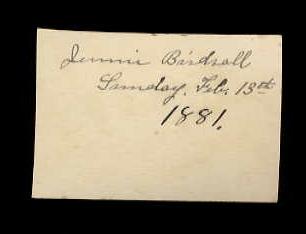 Jennie Birdsall
Sunday, Feb. 13th
1881.